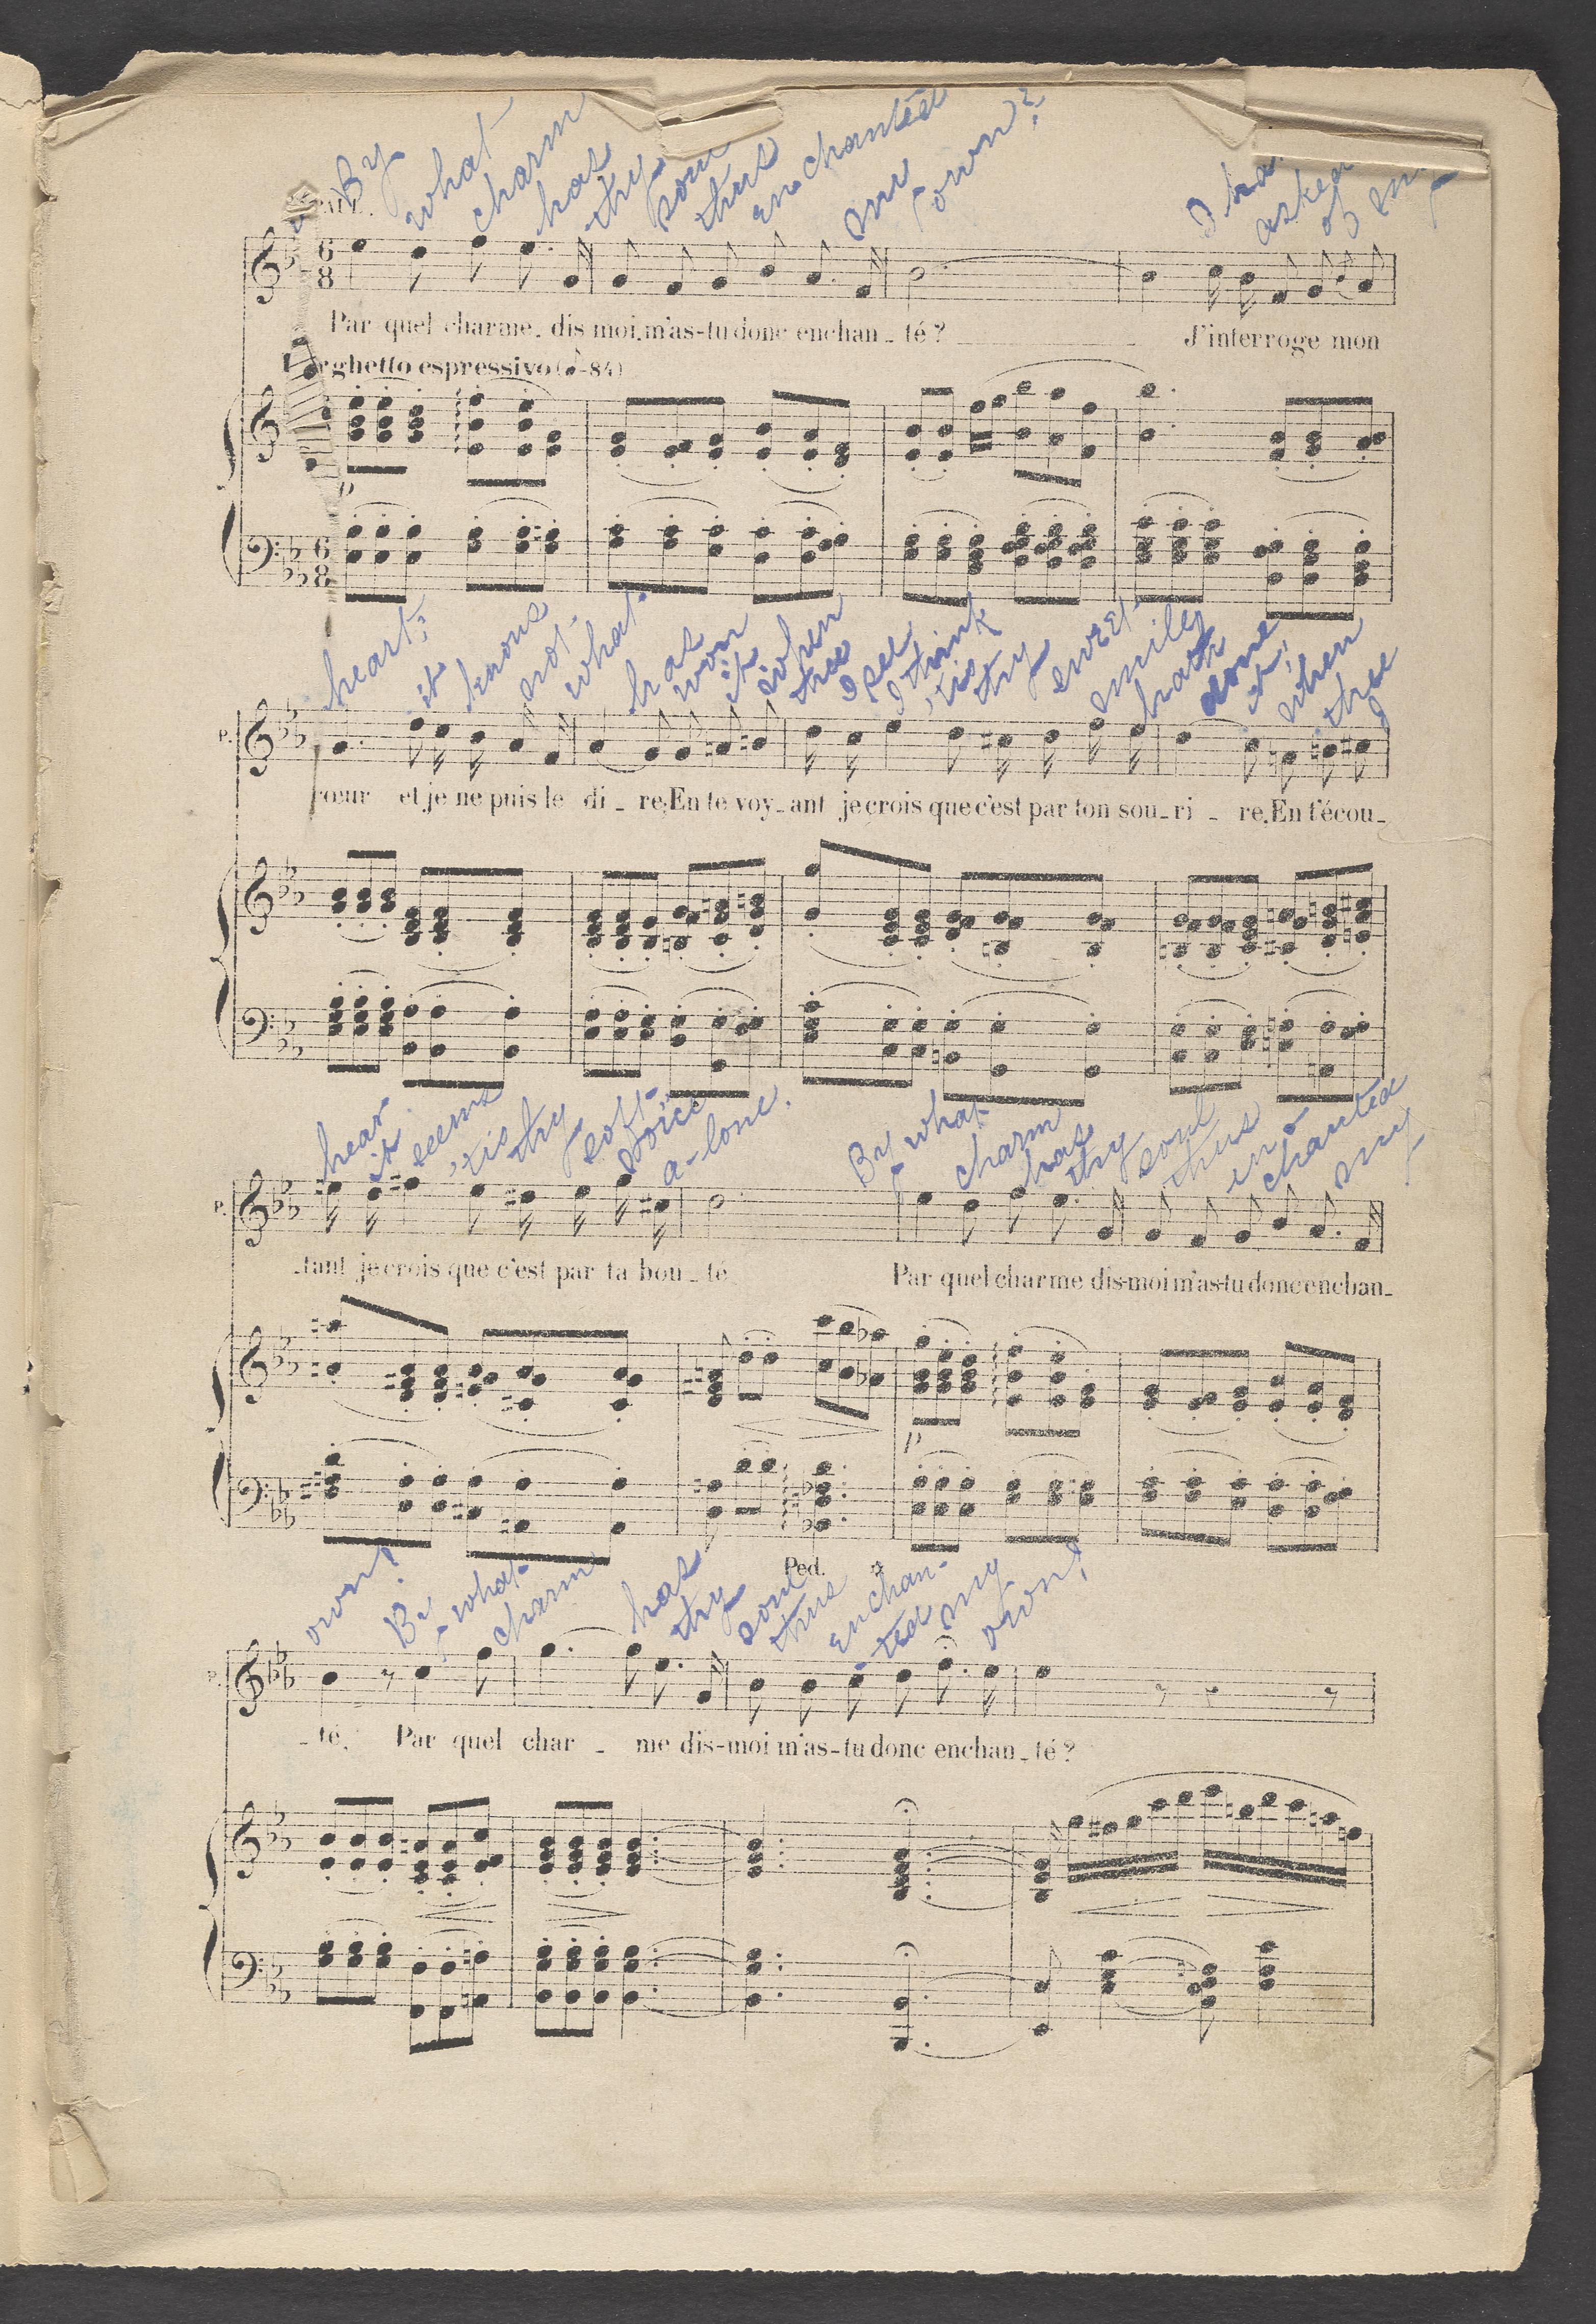 By what charm has thy soul thus enchanted my own? I ha asked of my
PAUL.
6
8
Par quel charme, dis moi, m'as-tu donc enchan_té? J'interroge mon
Larghetto espressivo (-84)
p
6
8
heart; it knows not what has won it when thee I see I think 'tis thy sweet smile hath done it, when thee I
P.
cœur et je ne puis le di_re, En te voy_ant je crois que c'est par ton sou_ri_re, En t'écou_
hear it seems 'tis thy soft voice a-lone. By what charm has thy soul thus en-chanted my
P.
_tant je crois que c'est par ta bon_té Par quel charme dis-moi m'as-tu donc enchan_
p
Ped.
own? By what charm has thy soul thus enchan-ted my own?
P.
_té, Par quel char_me dis-moi m'as-tu donc enchan_té?